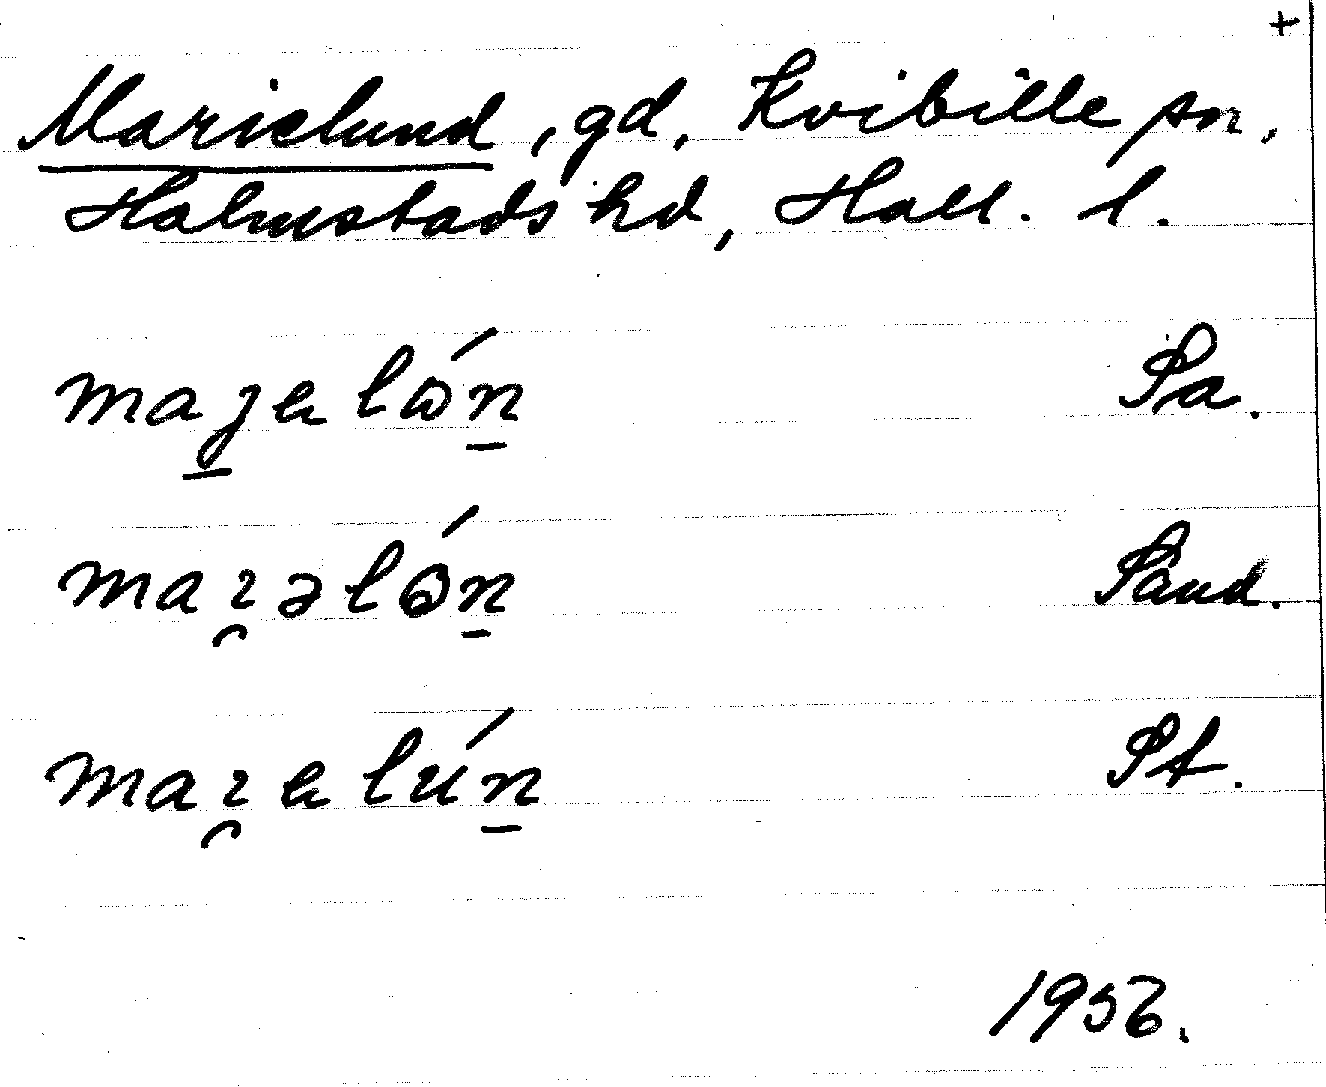 +
Marielund, gd, Kvibille sn,
Halmstads hd, Hall. l.
maɼelón Pa.
maɼəlón
maɼelún Pt.
1956.